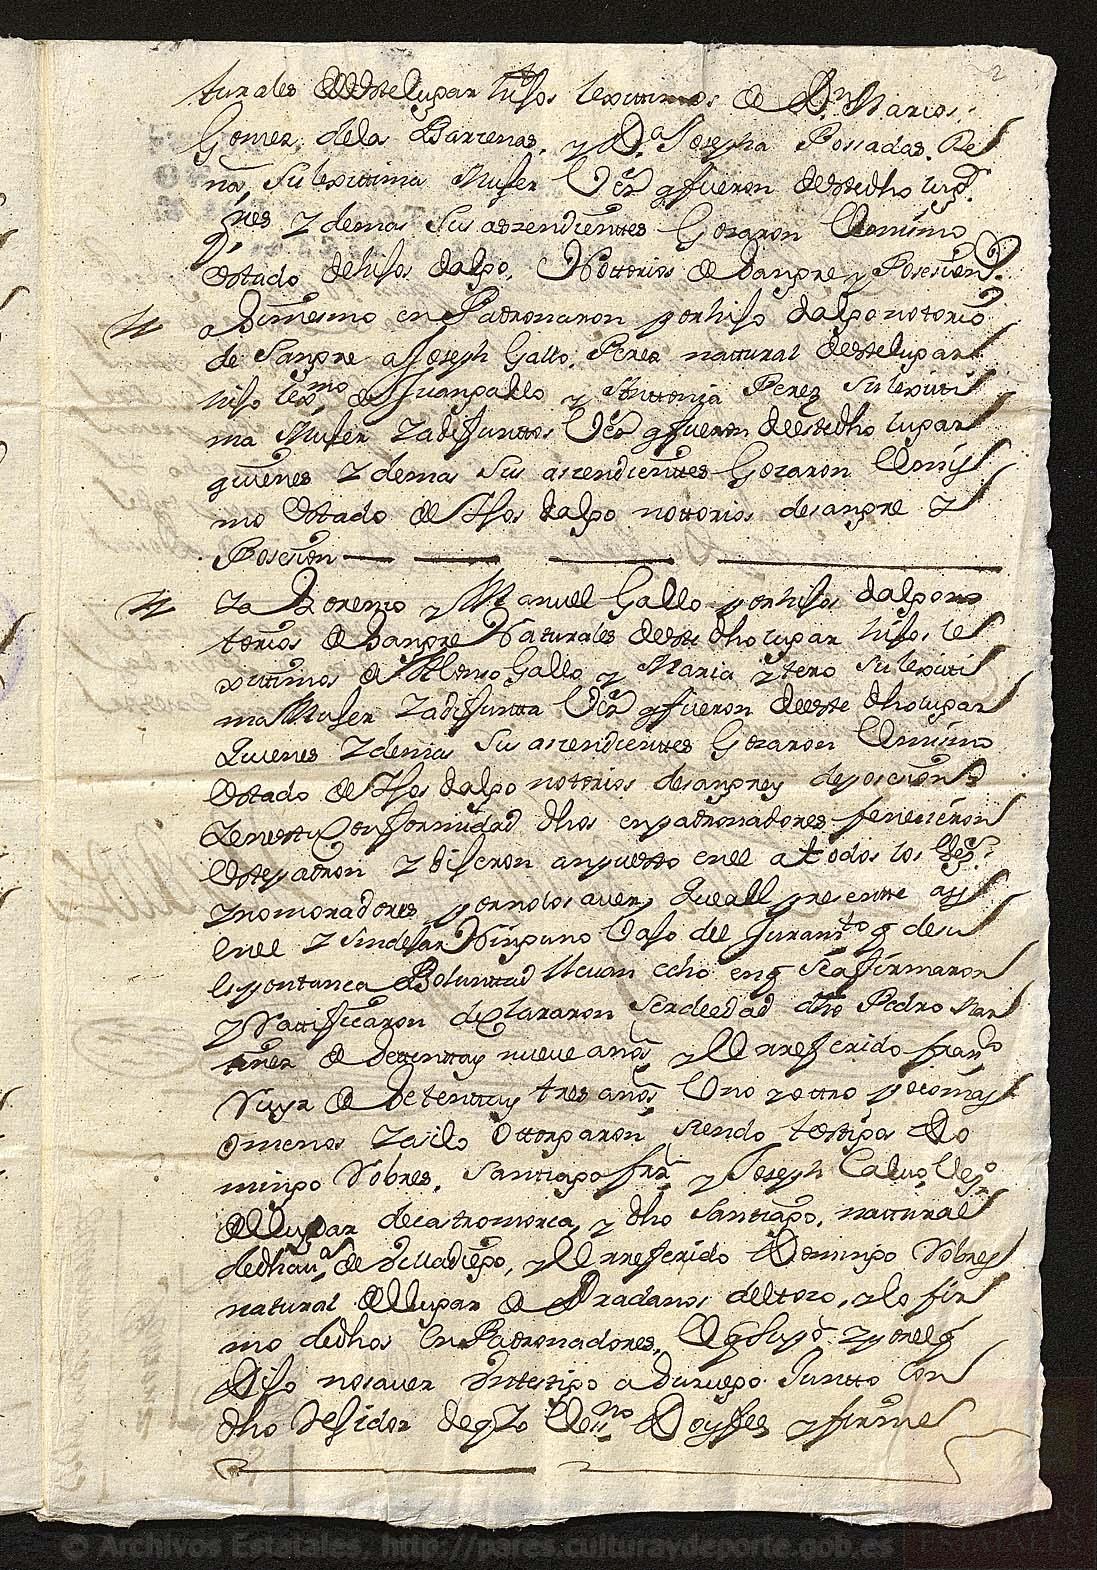 2
turales deeste lugar hijos lexittimos de Dn. Marcos
Gomez, de las Barzenas, y Da. Josepha Posadas. Re
na, su lexittima Muger Vezs. q fueron de este dho lugr.
qnes y demas sus aszendienttes Gozaron el mismo
estado de hijos dalgo, Nottorios de Sangre y Posesion
asimesmo enPadronaron por hijo dalgo notorio
de Sangre a Joseph Gallo Perez nattural deeste lugar
hijo lexmo. de Juan Gallo y Anttonia Perez su lexitti
ma Muger ya difunttos Vezs. q fueron deeste dho lugar
quienes y demas sus aszendienttes Gozaron el mis
mo estado de Hijos dalgo nottorios de sangre y
Posesion
Ya Lorenzo y Manuel Gallo por hijos dalgo no
torios de Sangre Naturales deeste dho lugar hijos le
xittimos de Alonso Gallo y Maria ytero su lexitti
ma Muger ya difuntta Vezs. q fueron deeste dho lugar
Quienes y demas sus aszendienttes Gozaron el mismo
estado de Hijos dalgo notorios de sangre y de posesion
y en esta Conformidad dhos enpadronadores fenezieron
este padron y dijeron an puesto en el a todos los Vezs.
y no moradores por no los aver, que all presentte ay
en el y sin dejar Ninguno Vajo del Juramto. q de su
espontanea Boluntad llevan echo en q se afirmaron
y Rattificaron declararon ser de edad dho Pedro Mar
tinez de Settentta y nueve años y el rreferido franco.
Ruyz de Setentta y tres años Uno y ottro poco mas
o menos y asi lo ottorgaron siendo testigos Do
mingo Robres, Santiago frz. y Joseph Calvo, Vezo.
del lugar de castromorca, y dho Santiago, nattural
de dha va. de Villadiego, y el rreferido Domingo Robres
natural del lugar de Pradanos del tozo, y lo fir
mo de dhos enPadronadores, el q supo y por el q
dijo no saver Un testigo a su ruego Juntto con
dho Rejidor de q Yo el essno. Doy fee y firme
© Archivos Estatales, http://pares.culturaydeporte.gob.es